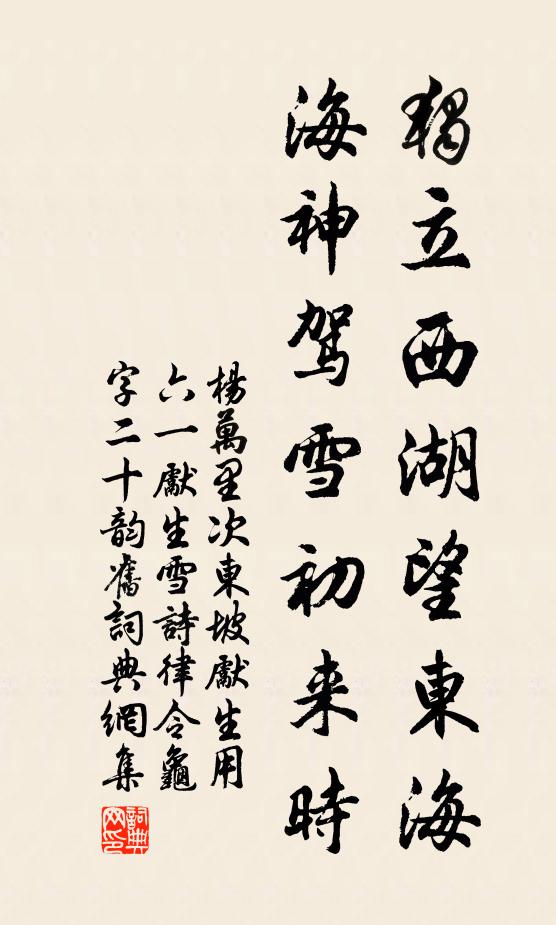 獨立西湖望東海
海神駕雪初来時
楊萬里次東坡獻生用
六一獻生雪詩律令龜
字二十韵舊詞典網集
詞典
网印